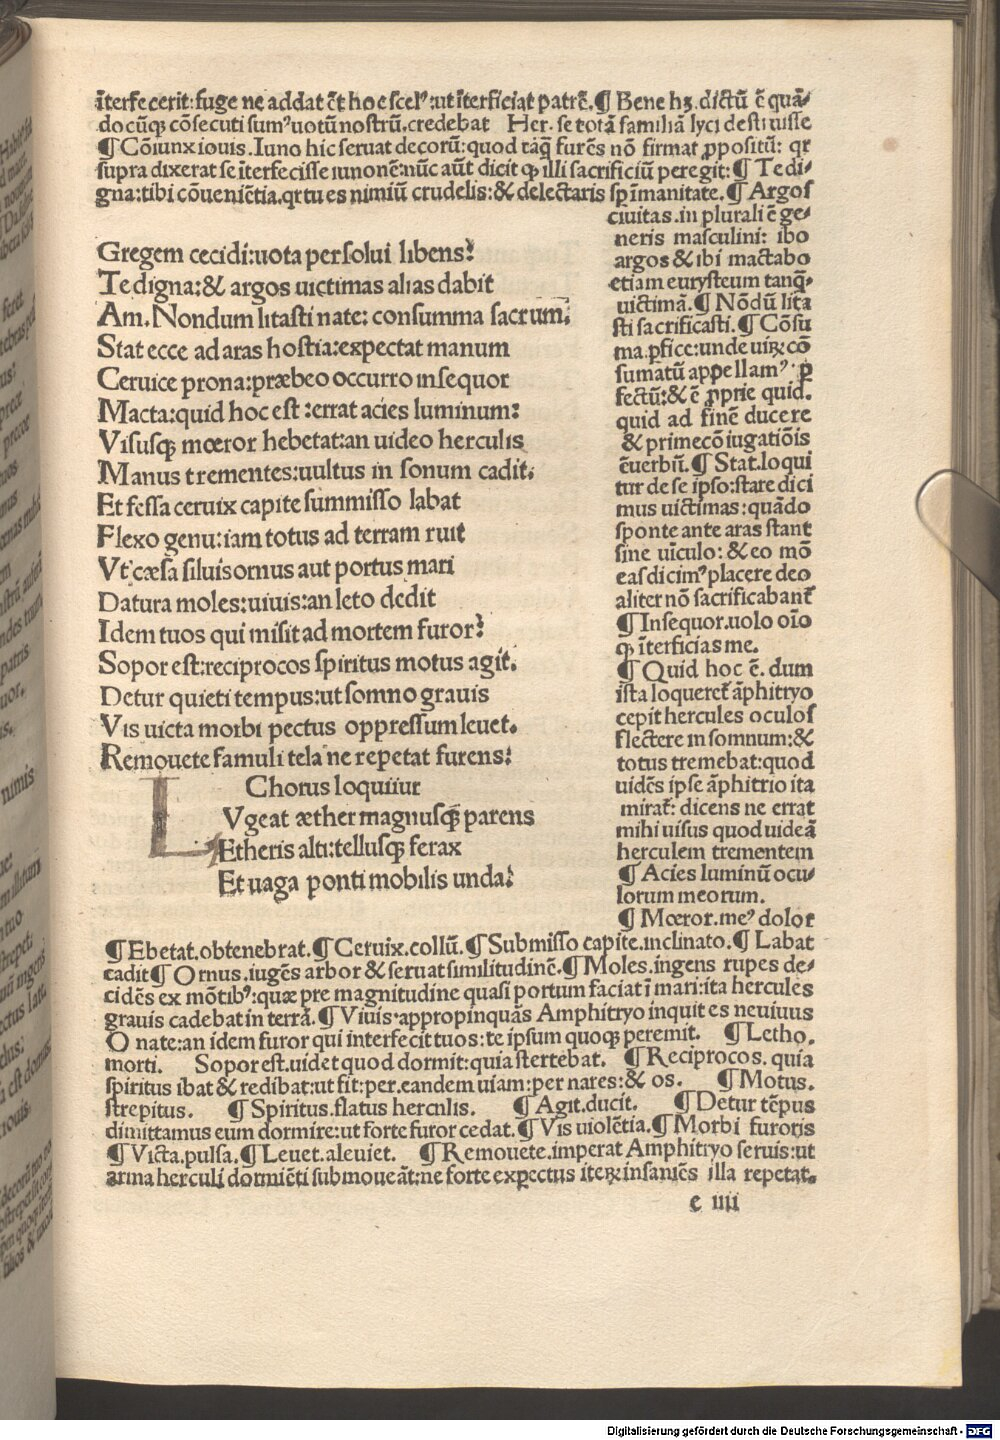 īterfecerit:fuge ne addat ēt hoc scelꝰ:ut īterficiat patrē.¶ Bene hꝫ.dictū ē quā/
docūqꝫ cōsecuti sumꝰ uotū nostrū.credebat Her. se totā familiā lyci destiuisse
¶ Cōiunx iouis. Iuno hic seruat decorū:quod tāqꝫ furēs nō firmat ꝓpositū: qr
supra dixerat se īterfecisse iunonē:nūc aūt dicit ꝙ illi sacrificiū peregit: ¶ Te di/
gna:tibi cōueniētia.qr tu es nimiū crudelis:& delectaris sꝑ īmanitate.¶ Argos
ciuitas.in plurali ē ge/
neris masculini: ibo
argos & ibi mactabo
etiam eurysteum tanqꝫ
uictimā.¶ Nōdū lita
sti sacrificasti.¶ Cōsu
ma.ꝑfice:unde uirꝫ cō
sumatū appellamꝰ ꝑ
fectū:& ē ꝓprie quid.
quid ad finē ducere
& prime cōiugatiōis
ē uerbū.¶ Stat.loqui
tur de se ipso:stare dici
mus uictimas:quādo
sponte ante aras stant
sine uīculo:& eo mō
eas dicimꝰ placere deo
aliter nō sacrificabant̄
¶ Insequor.uolo oīo
ꝙ īterficias me.
¶ Quid hoc ē. dum
ista loqueret̄ āphitryo
cepit hercules oculos
flectere in somnum:&
totus tremebat:quod
uidēs ipse āphitrio ita
mirat̄: dicens ne errat
mihi uisus quod uideā
herculem trementem
¶ Acies luminū ocu/
lorum meorum.
¶ Mœror.meꝰ dolor
Gregem cecidi:uota persolui libens:
Te digna:& argos uictimas alias dabit
Am. Nondum litasti nate: consumma sacrum:
Stat ecce ad aras hostia:expectat manum
Ceruice prona:præbeo occurro insequor
Macta:quid hoc est :errat acies luminum:
Visusqꝫ mœror hebetat:an uideo herculis
Manus trementes:uultus in sonum cadit:
Et fessa ceruix capite summisso labat
Flexo genu:iam totus ad terram ruit
Vt cæsa siluis ornus aut portus mari
Datura moles:uiuis:an leto dedit
Idem tuos qui misit ad mortem furor:
Sopor est:reciprocos spiritus motus agit.
Detur quieti tempus:ut somno grauis
Vis uicta morbi pectus oppressum leuet.
Remouete famuli tela ne repetat furens:
Chorus loquitur
L Vgeat æther magnusqꝫ parens
Etheris alti:tellusqꝫ ferax
Et uaga ponti mobilis unda:
¶ Ebetat.obtenebrat.¶ Ceruix.collū.¶ Submisso capite.inclinato.¶ Labat
cadit ¶ Ornus.iugēs arbor & seruat similitudinē.¶ Moles.ingens rupes de/
cidēs ex mōtibꝰ:quæ pre magnitudine quasi portum faciat ī mari:ita hercules
grauis cadebat in terrā.¶ Viuis.appropinquās Amphitryo inquit es ne uiuus
O nate:an idem furor qui interfecit tuos:te ipsum quoqꝫ peremit. ¶ Letho.
morti. Sopor est.uidet quod dormit:quia stertebat. ¶ Reciprocos. quia
spiritus ibat & redibat:ut fit:per.eandem uiam:per nares:& os. ¶ Motus.
strepitus. ¶ Spiritus.flatus herculis. ¶ Agit.ducit. ¶ Detur tēpus
dimittamus eum dormire:ut forte furor cedat.¶ Vis uiolētia.¶ Morbi furoris
¶ Victa.pulsa.¶ Leuet.aleuiet. ¶ Remouete.imperat Amphitryo seruis:ut
arma herculi dormiēti submoueāt:ne forte expectus iterꝫ insaniēs illa repetat.
e iiii
Digitalisierung gefördert durch die Deutsche Forschungsgemeinschaft - DFG